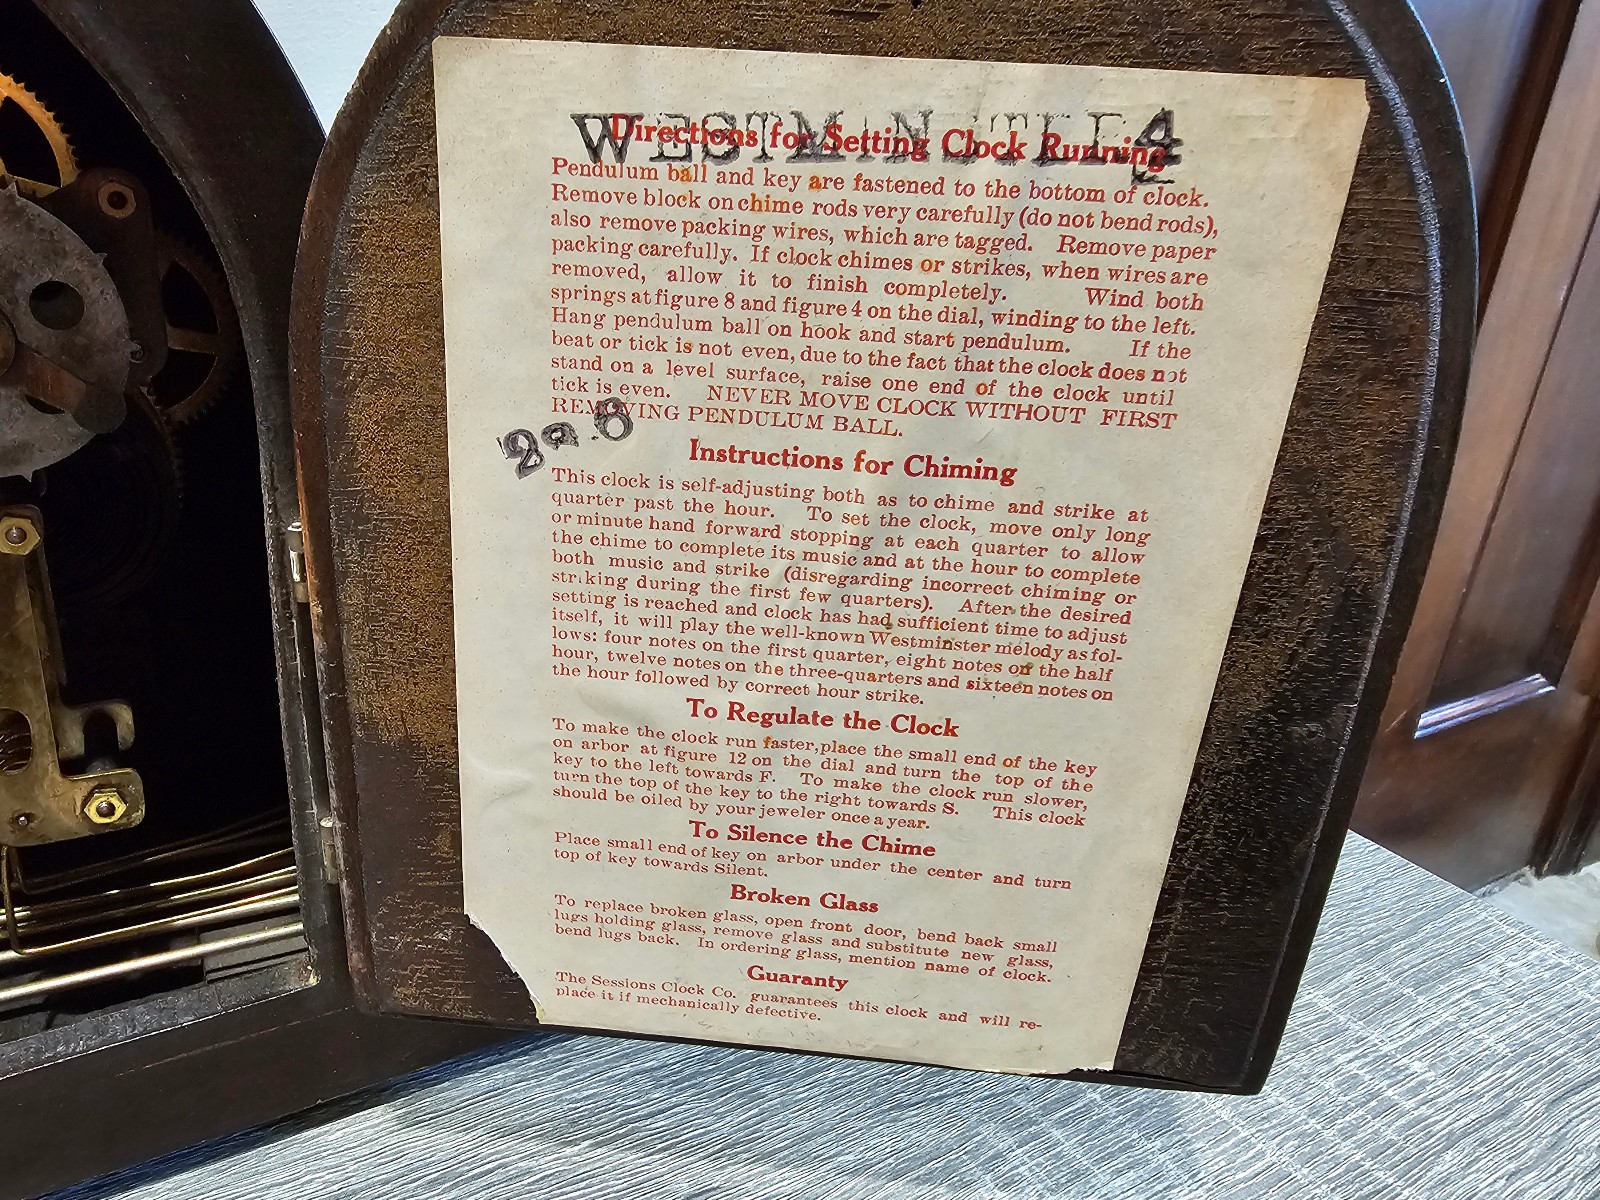 WESTMIN
Directions for Setting Clock Running
Pendulum ball and key are fastened to the bottom of clock.
Remove block on chime rods very carefully (do not bend rods),
also remove packing wires, which are tagged. Remove paper
packing carefully. If clock chimes or strikes, when wires are
removed, allow it to finish completely. Wind both
springs at figure 8 and figure 4 on the dial, winding to the left.
Hang pendulum ball on hook and start pendulum. If the
beat or tick is not even, due to the fact that the clock does not
stand on a level surface, raise one end of the clock until
tick is even. NEVER MOVE CLOCK WITHOUT FIRST
REMOVING PENDULUM BALL.
Instructions for Chiming
This clock is self-adjusting both as to chime and strike at
quarter past the hour. To set the clock, move only long
or minute hand forward stopping at each quarter to allow
the chime to complete its music and at the hour to complete
both music and strike (disregarding incorrect chiming or
striking during the first few quarters). After the desired
setting is reached and clock has had sufficient time to adjust
itself, it will play the well-known Westminster melody as fol-
lows: four notes on the first quarter, eight notes on the half
hour, twelve notes on the three-quarters and sixteen notes on
the hour followed by correct hour strike.
To Regulate the Clock
To make the clock run faster, place the small end of the key
on arbor at figure 12 on the dial and turn the top of the
key to the left towards F. To make the clock run slower,
turn the top of the key to the right towards S. This clock
should be oiled by your jeweler once a year.
To Silence the Chime
Place small end of key on arbor under the center and turn
top of key towards Silent.
Broken Glass
To replace broken glass, open front door, bend back small
lugs holding glass, remove glass and substitute new glass,
bend lugs back. In ordering glass, mention name of clock.
Guaranty
The Sessions Clock Co. guarantees this clock and will re-
place it if mechanically defective.